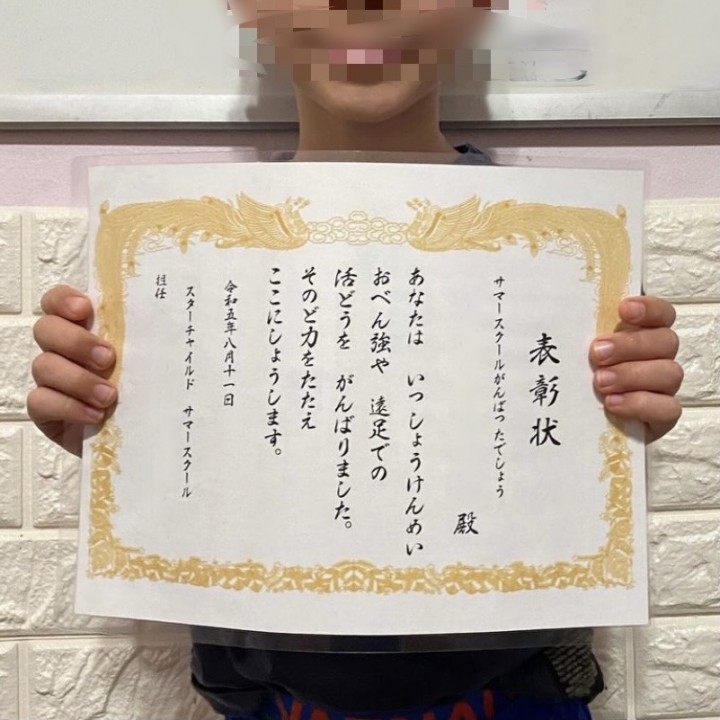 表彰状
サマースクールがんばったでしょう
殿
あなたは いっしょうけんめい
おべん強や 遠足での
活どうを がんばりました。
そのど力をたたえ
ここにしょうします。
令和五年八月十一日
スターチャイルド サマースクール
担任